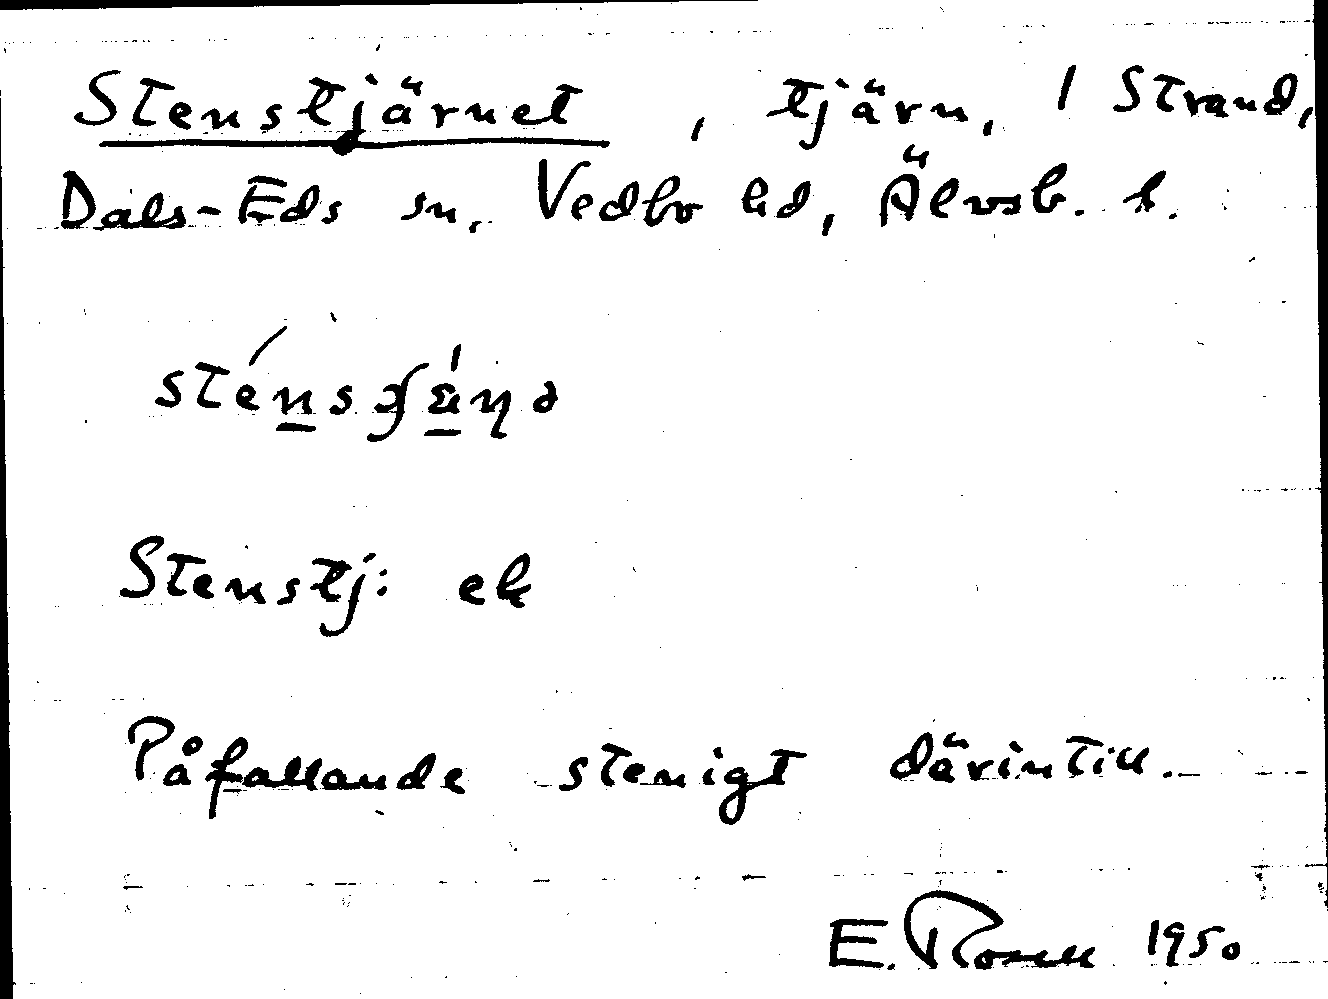 Stenstjärnet, tjärn, 1 Strand,
Dals-Eds sn, Vedbo hd, Älvsb. l.
Stenstj: ek
Påfallande stenigt därintill.
E. Rosell 1950